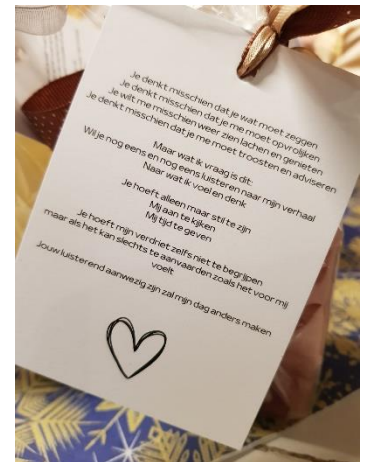 Je denkt misschien dat je wat moet zeggen
Je denkt misschien dat je me moet opvrolijken
Je wilt me misschien weer zien lachen en genieten
Je denkt misschien dat je me moet troosten en adviseren
Maar wat ik vraag is dit:
Wil je nog eens en nog eens luisteren naar mijn verhaal
Naar wat ik voel en denk
Je hoeft alleen maar stil te zijn
Mij aan te kijken
Mij tijd te geven
Je hoeft mijn verdriet zelfs niet te begrijpen
maar als het kan slechts te aanvaarden zoals het voor mij
voelt
Jouw luisterend aanwezig zijn zal mijn dag anders maken